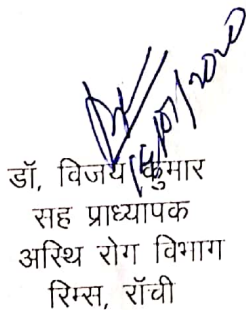 15/07/2020
डॉ, विजय कुमार
सह प्राध्यापक
अस्थि रोग विभाग
रिम्स, राँची